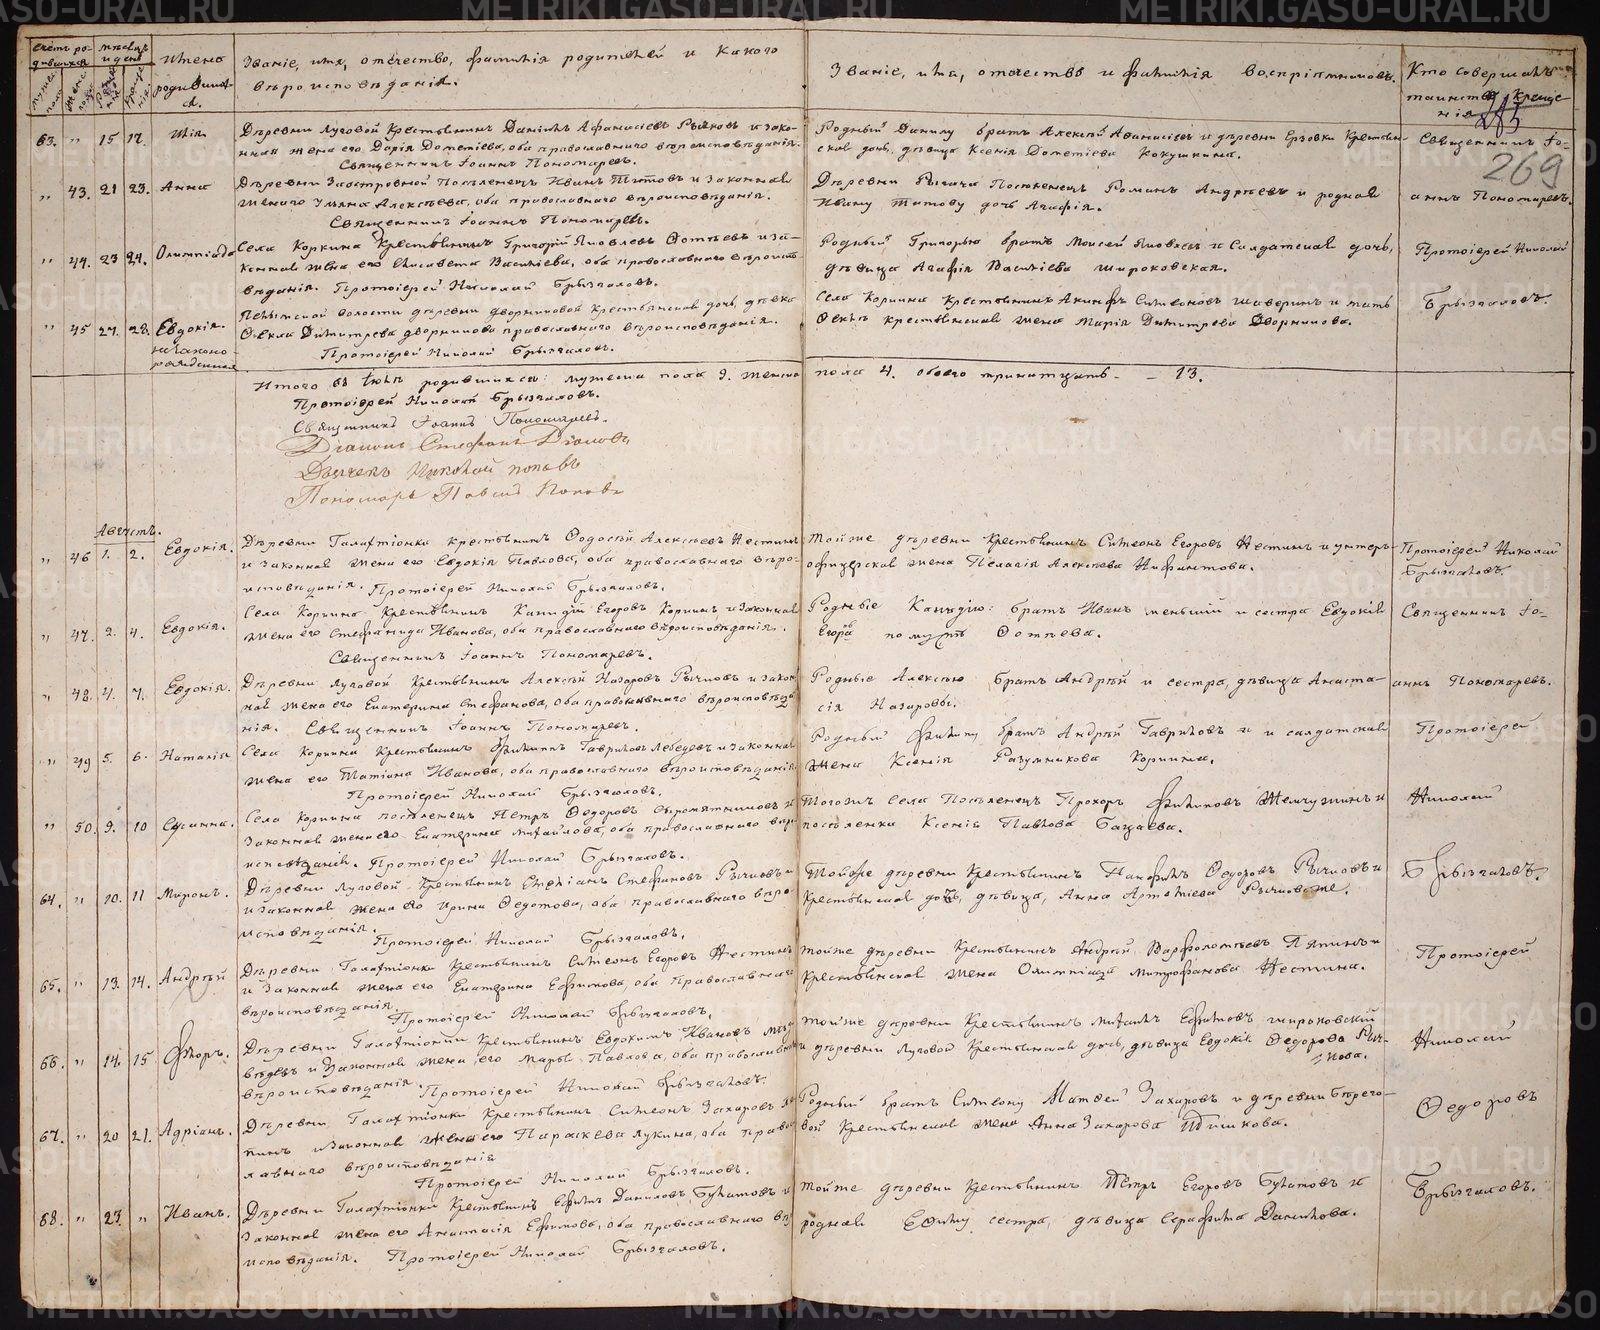 METRIKI.GASO-URAL.RU
Счетъ ро-
дившихся
Мѣсяцъ
и день
Имена
родивших-
ся.
Званіе, имя, отечество, фамилія родителей и какого
вѣроисповѣданія.
Званіе, имя, отечество и фамилія воспріемниковъ.
Кто совершалъ
таинство креще-
нія
269
63. " 15 17. Илія
Деревни Луговой крестьянинъ Даніилъ Афанасіевъ Рычковъ и зако-
нная жена его Дарія Дометіева, оба православнаго вѣроисповѣданія.
Священникъ Іоаннъ Пономаревъ.
Родный Данилу братъ Алексѣй Афанасіевъ и деревни Ерзовки крестьян-
ская дочь, дѣвица Ксенія Дометіева Кокушкина.
Священникъ Іо-
" 43. 21 23. Анна
Деревни Заостровной поселенецъ Иванъ Титовъ и законная
жена его Ульяна Алексѣева, оба православнаго вѣроисповѣданія.
Священникъ Іоаннъ Пономаревъ.
Деревни Рычкова поселенецъ Романъ Андрѣевъ и родная
Ивану Титову дочь Агафія.
аннъ Пономаревъ.
" 44. 23 24. Олимпіада
Села Коркина крестьянинъ Григорій Яковлевъ Фотѣевъ и за-
конная жена его Елисавета Василіева, оба православнаго вѣроиспо-
вѣданія. Протоіерей Николай Брызгаловъ.
Родный Григорью братъ Моисей Яковлевъ и солдатская дочь,
дѣвица Агафія Василіева Широковская.
Протоіерей Николай
" 45 27. 28. Евдокія.
незаконо-
рожденная
волости деревни Дворниковой крестьянская дочь, дѣвка
Фекла Димитрева Дворникова православнаго вѣроисповѣданія.
Протоіерей Николай Брызгаловъ.
Села Коркина крестьянинъ Акинфъ Симеоновъ Шаверинъ и мать
Феклѣ крестьянская жена Марія Димитрева Дворникова.
Брызгаловъ.
Итого въ Іюлѣ родившихся: мужеска пола 9. женска
пола 4. обоего тринатцать - - 13.
Протоіерей Николай Брызгаловъ.
Священникъ Іоаннъ Пономаревъ.
Діаконъ Стефанъ Діаковъ
Дьячекъ Николай Поповъ
Пономарь Павелъ Поповъ
Августъ.
" 46 1. 2. Евдокія.
Деревни Галактіонки крестьянинъ Ѳодосѣй Алексѣевъ Нестинъ
и законная жена его Евдокія Павлова, оба православнаго вѣро-
исповѣданія. Протоіерей Николай Брызгаловъ.
Тойже деревни крестьянинъ Симеонъ Егоровъ Нестинъ и унтеръ-
офицерская жена Пелагія Алексѣева Нифантова.
Протоіерей Николай
Брызгаловъ.
" 47. 2. 4. Евдокія.
Села Коркина крестьянинъ Каллидій Егоровъ Коркинъ и законная
жена его Стефанида Иванова, оба православнаго вѣроисповѣданія.
Священникъ Іоаннъ Пономаревъ.
Родные братъ Иванъ меньшій и сестра Евдокія
Егоровы по мужѣ Фотѣева.
Священникъ Іо-
" 48. 4. 7. Евдокія.
Деревни Луговой крестьянинъ Алексѣй Назаровъ Рычковъ и закон-
ная жена его Екатерина Стефанова, оба православнаго вѣроисповѣда-
нія. Священникъ Іоаннъ Пономаревъ.
Родные Алексѣю братъ Андрѣй и сестра, дѣвица Анаста-
сія Назаровы.
аннъ Пономаревъ.
" 49 5. 6. Наталія
Села Коркина крестьянинъ Филиппъ Гавриловъ Лебедевъ и законная
жена его Татіана Иванова, оба православнаго вѣроисповѣданія.
Протоіерей Николай Брызгаловъ.
Родный Филипу братъ Андрѣй Гавриловъ и солдатская
жена Ксенія Разумникова Коркина.
Протоіерей
" 50. 9. 10 Сусанна.
Села Коркина поселенецъ Петръ Федоровъ Сыромятниковъ и
законная жена его Екатерина Михайлова, оба православнаго вѣро-
исповѣданія. Протоіерей Николай Брызгаловъ.
Тогожъ села поселенецъ Прохоръ Филиповъ Жемчужинъ и
поселенка Ксенія Павлова Бацаева.
Николай
64. " 10. 11 Миронъ.
Деревни Луговой крестьянинъ Емеліанъ Стефановъ Рычковъ
и законная жена его Ирина Федотова, оба православнаго вѣро-
исповѣданія.
Протоіерей Николай Брызгаловъ.
Тойже деревни крестьянинъ Панфилъ Федоровъ Рычковъ и
крестьянская дочь, дѣвица, Анна Артемьева Рычковаже.
Брызгаловъ.
65. " 13. 14. Андрѣй
Деревни Галактіонки крестьянинъ Симеонъ Егоровъ Нестинъ
и законная жена его Екатерина Ефимова, оба православнаго
вѣроисповѣданія.
Протоіерей Николай Брызгаловъ.
Тойже деревни крестьянинъ Андрѣй Варфоломѣевъ Пятинъ и
крестьянская жена Олимпіада Митрофанова Нестина.
Протоіерей
66. " 14. 15 Флоръ.
Деревни Галактіонки крестьянинъ Евдокимъ Ивановъ Мед-
вѣдевъ и законная жена его Марья Павлова, оба православнаго
вѣроисповѣданія. Протоіерей Николай Брызгаловъ.
Тойже деревни крестьянинъ Михаилъ Ефимовъ Широковскій
и деревни Луговой крестьянская дочь, дѣвица Евдокія Федорова Рыч-
кова.
Николай
67. " 20 21. Адріанъ.
Деревни Галактіонки крестьянинъ Симеонъ Захаровъ
и законная жена его Параскева Лукина, оба право-
славнаго вѣроисповѣданія
Протоіерей Николай Брызгаловъ.
Родный братъ Симеону Матвей Захаровъ и деревни Берего-
вой крестьянская жена Анна Захарова
Федоровъ
68. " 23. " Иванъ.
Деревни Галактіонки крестьянинъ Ефимъ Даниловъ Булатовъ и
законная жена его Анастасія Ефимова, оба православнаго вѣро-
исповѣданія. Протоіерей Николай Брызгаловъ.
Тойже деревни крестьянинъ Петръ Егоровъ Булатовъ и
родная Ефиму сестра, дѣвица Серафима Данилова.
Брызгаловъ.